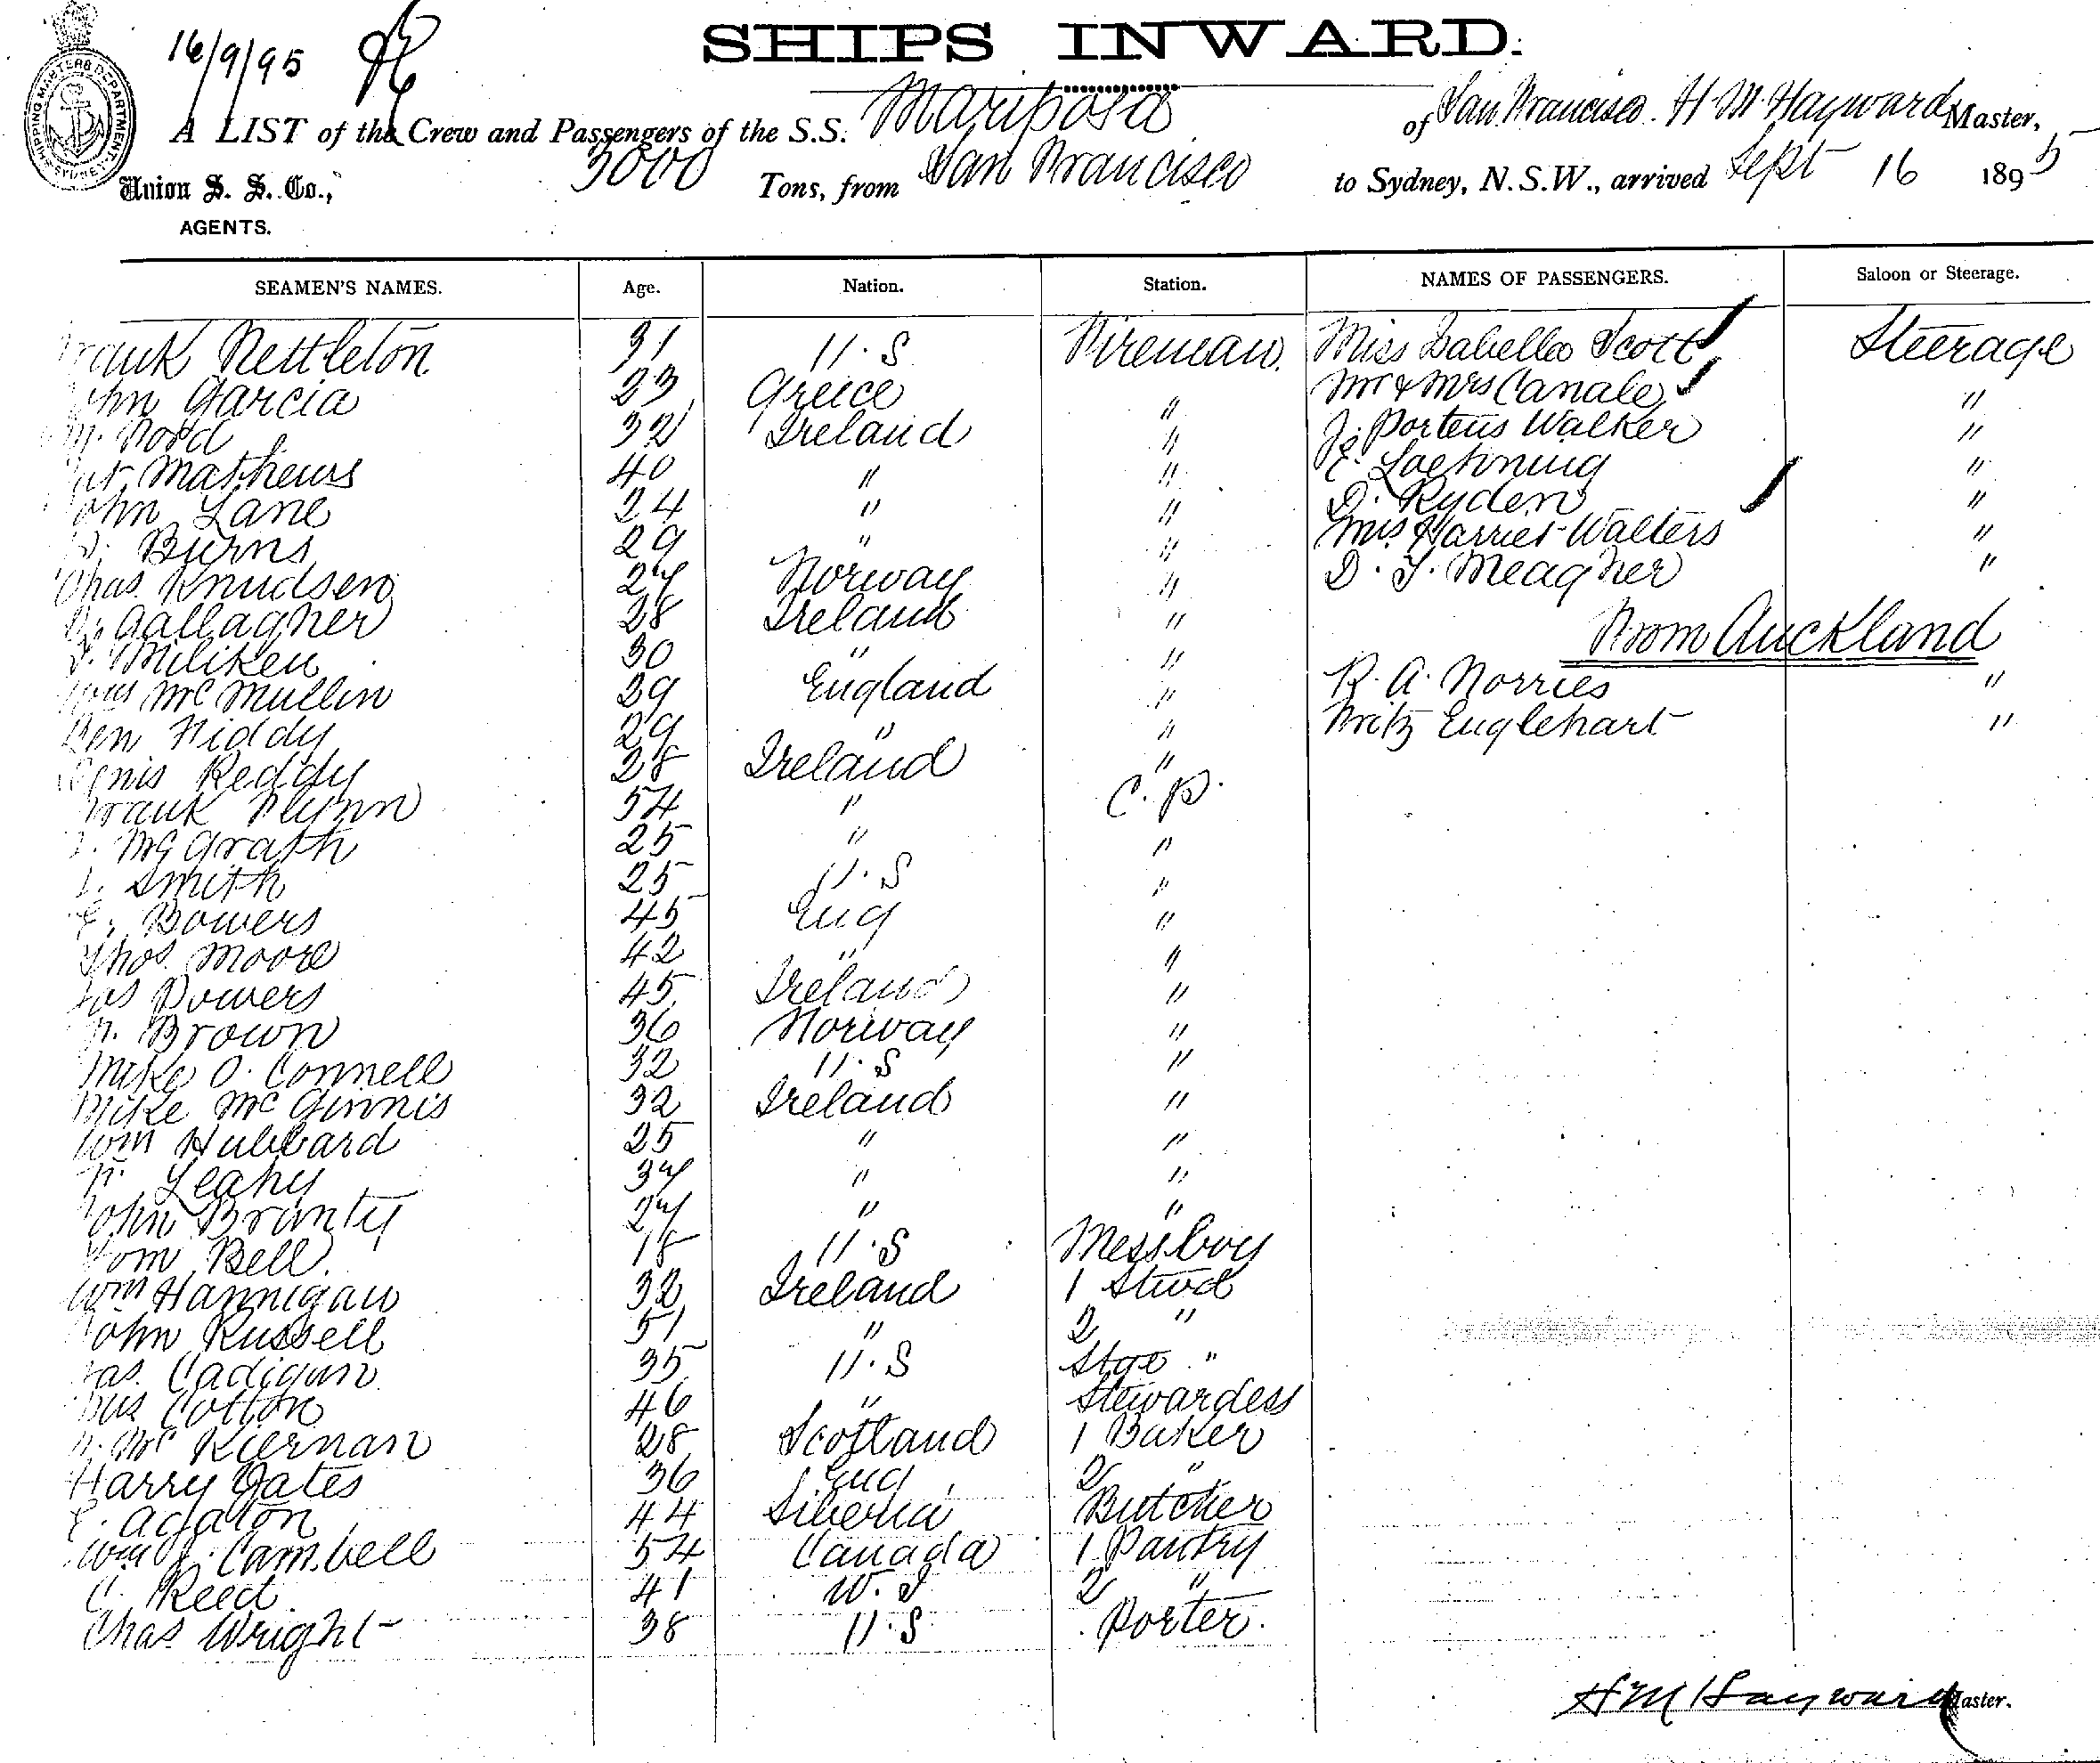 SHIPS INWARD.
16/9/95
SHIPPING MASTERS DEPARTMENT. SYDNEY
A LIST of the Crew and Passengers of the S.S. Mariposa of San Francisco. H. M. Hayward Master,
Union S. S. Co., AGENTS. 3000 Tons, from San Francisco to Sydney, N.S.W., arrived Sept 16 1895
SEAMEN'S NAMES. Age. Nation. Station. NAMES OF PASSENGERS. Saloon or Steerage.
Frank Nettleton 31 U.S Fireman. Miss Isabella Scott Steerage
John Garcia 23 Greice " Mr & Mrs Canale "
Ford 32 Ireland " J. Porteus Walker "
Pat Mathews 40 " " E. Laehning "
John Lane 24 " " D. Ryden "
Burns 29 " " Mrs Harriet Walters "
Chas Knudsen 27 Norway " D. J. Meagher "
Gallagher 28 Ireland "
From Auckland
Miliken 30 " "
McMullin 39 England " R. A. Norries "
Ben Fiddy 29 " " Fritz Englehart "
Denis Reddy 28 Ireland "
Frank Flynn 54 " C. P.
McGrath 25 " "
Smith 25 U.S "
E. Bowers 45 Eng "
Thos. Moore 42 " "
Jas Powers 45 Ireland "
Brown 36 Norway "
Mike O. Connell 32 U.S "
Mike McGinnis 32 Ireland "
Wm Hubbard 25 " "
Leahy 37 " "
John Branty 27 " "
Tom Bell. 18 U.S Messboy
Wm Hannigan 32 Ireland 1 Stwd
John Russell 51 " 2 "
Jas. Cadigan 35 U.S Stge "
Cotton 46 " Stewardess
Mc Kiernan 28 Scotland 1 Baker
Harry Oates 36 Eng 2 "
E. Agaton 44 Siberia Butcher
Wm J. Cambell 54 Canada 1 Pantry
C. Reed. 41 W. I 2 "
Chas Wright 38 U.S Porter.
H M Hayward Master.